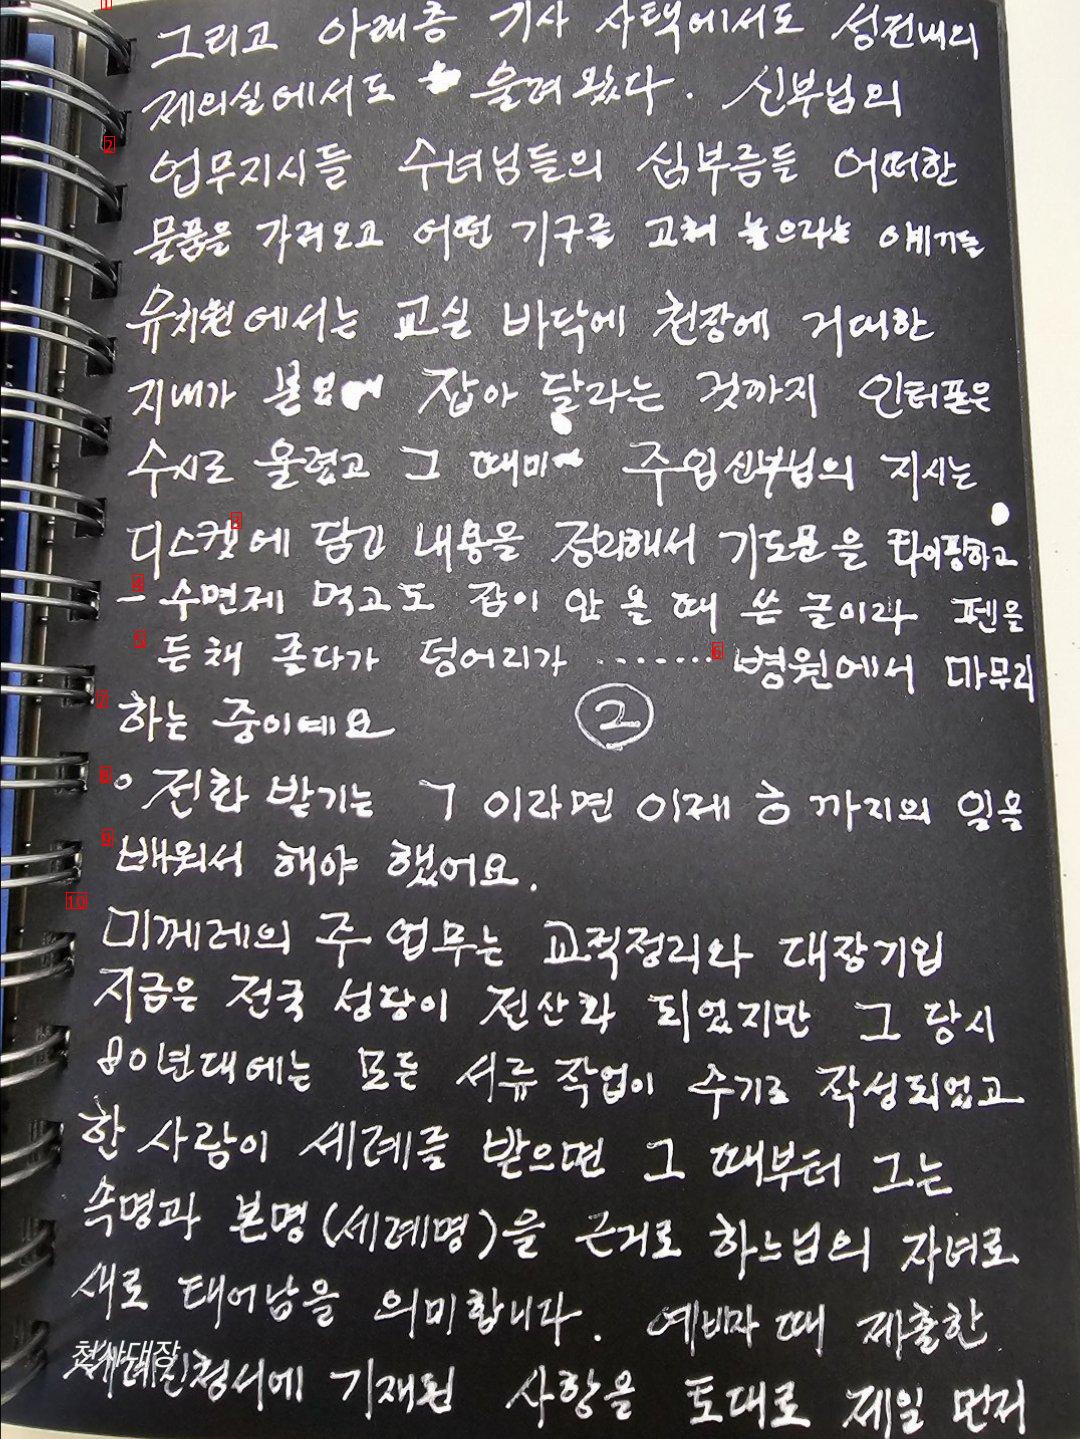 그리고 아래층 기사 사택에서도 성전내의
제의실에서도 울려 왔다. 신부님의
업무지시들 수녀님들의 심부름들 어떠한
물품을 가져오고 어떤 기구를 고쳐 놓으라는 얘기들
유치원에서는 교실 바닥에 천장에 거대한
지네가 잡아 달라는 것까지 인터폰은
수시로 울렸고 그 때마다 주임신부님의 지시는
디스켓에 담긴 내용을 정리해서 기도문을 타이핑하고
- 수면제 먹고도 잠이 안 올 때 쓴 글이라 펜을
든 채 졸다가 덩어리가 ........ 병원에서 마무리
하는 중이예요
②
○ 전화 받기는 ㄱ 이라면 이제 ㅎ 까지의 일을
배워서 해야 했어요.
미께레의 주 업무는 교적정리와 대장기입
지금은 전국 성당이 전산화 되었지만 그 당시
80년대에는 모든 서류 작업이 수기로 작성되었고
한 사람이 세례를 받으면 그 때부터 그는
속명과 본명(세례명)을 근거로 하느님의 자녀로
새로 태어남을 의미합니다. 예비자 때 제출한
신청서에 기재된 사항을 토대로 제일 먼저
천사대장